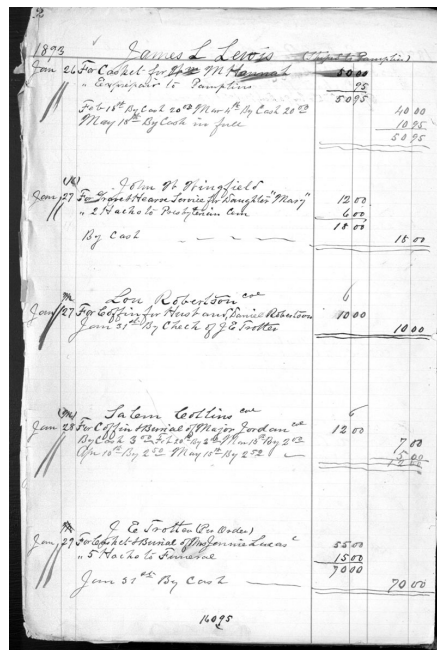 2
1893 James L Lewis (Shipt to Pamplin)
Jan 26 For Casket for M Hannah 50 00
" Express to Pamplins 95
50 95
Feb 18th By Cash 20 00 Mar 4th By Cash 20 00 40 00
May 18th By Cash in full 10 95
50 95
John W Wingfield
Jan 27 For Grave & Hearse Service for Daughter "Mary" 12 00
" 2 Hacks to Presbyterian Cem 6 00
18 00
By Cash 18 00
Lou Robertson col
Jan 27 For Coffin for Husband, Daniel Robertson 10 00
Jan 31st By Check of J E Trotter 10 00
Salem Collins col
Jan 28 For Coffin & Burial of Major Jordan col 12 00
By Cash 3 00 Feb 20th By 2 00 Mar 18th By 2 00 7 00
Apr 10th By 2 50 May 10th By 2 50 5 00
12 00
J E Trotter (Per Order)
Jan 29 For Casket & Burial of Mrs Jennie Lucas 55 00
" 5 Hacks to Funeral 15 00
70 00
Jan 31st By Cash 70 00
160 95